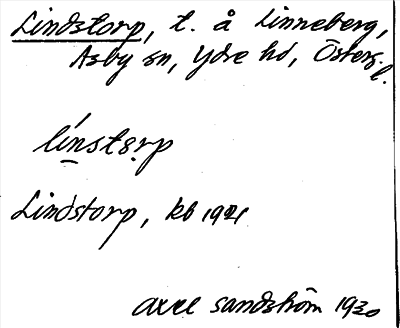 Lindstorp, t. å Linneberg,
Asby sn, Ydre hd, Österg.
l.
línstorp
Lindstorp, kb 1921
Axel Sandström 1930